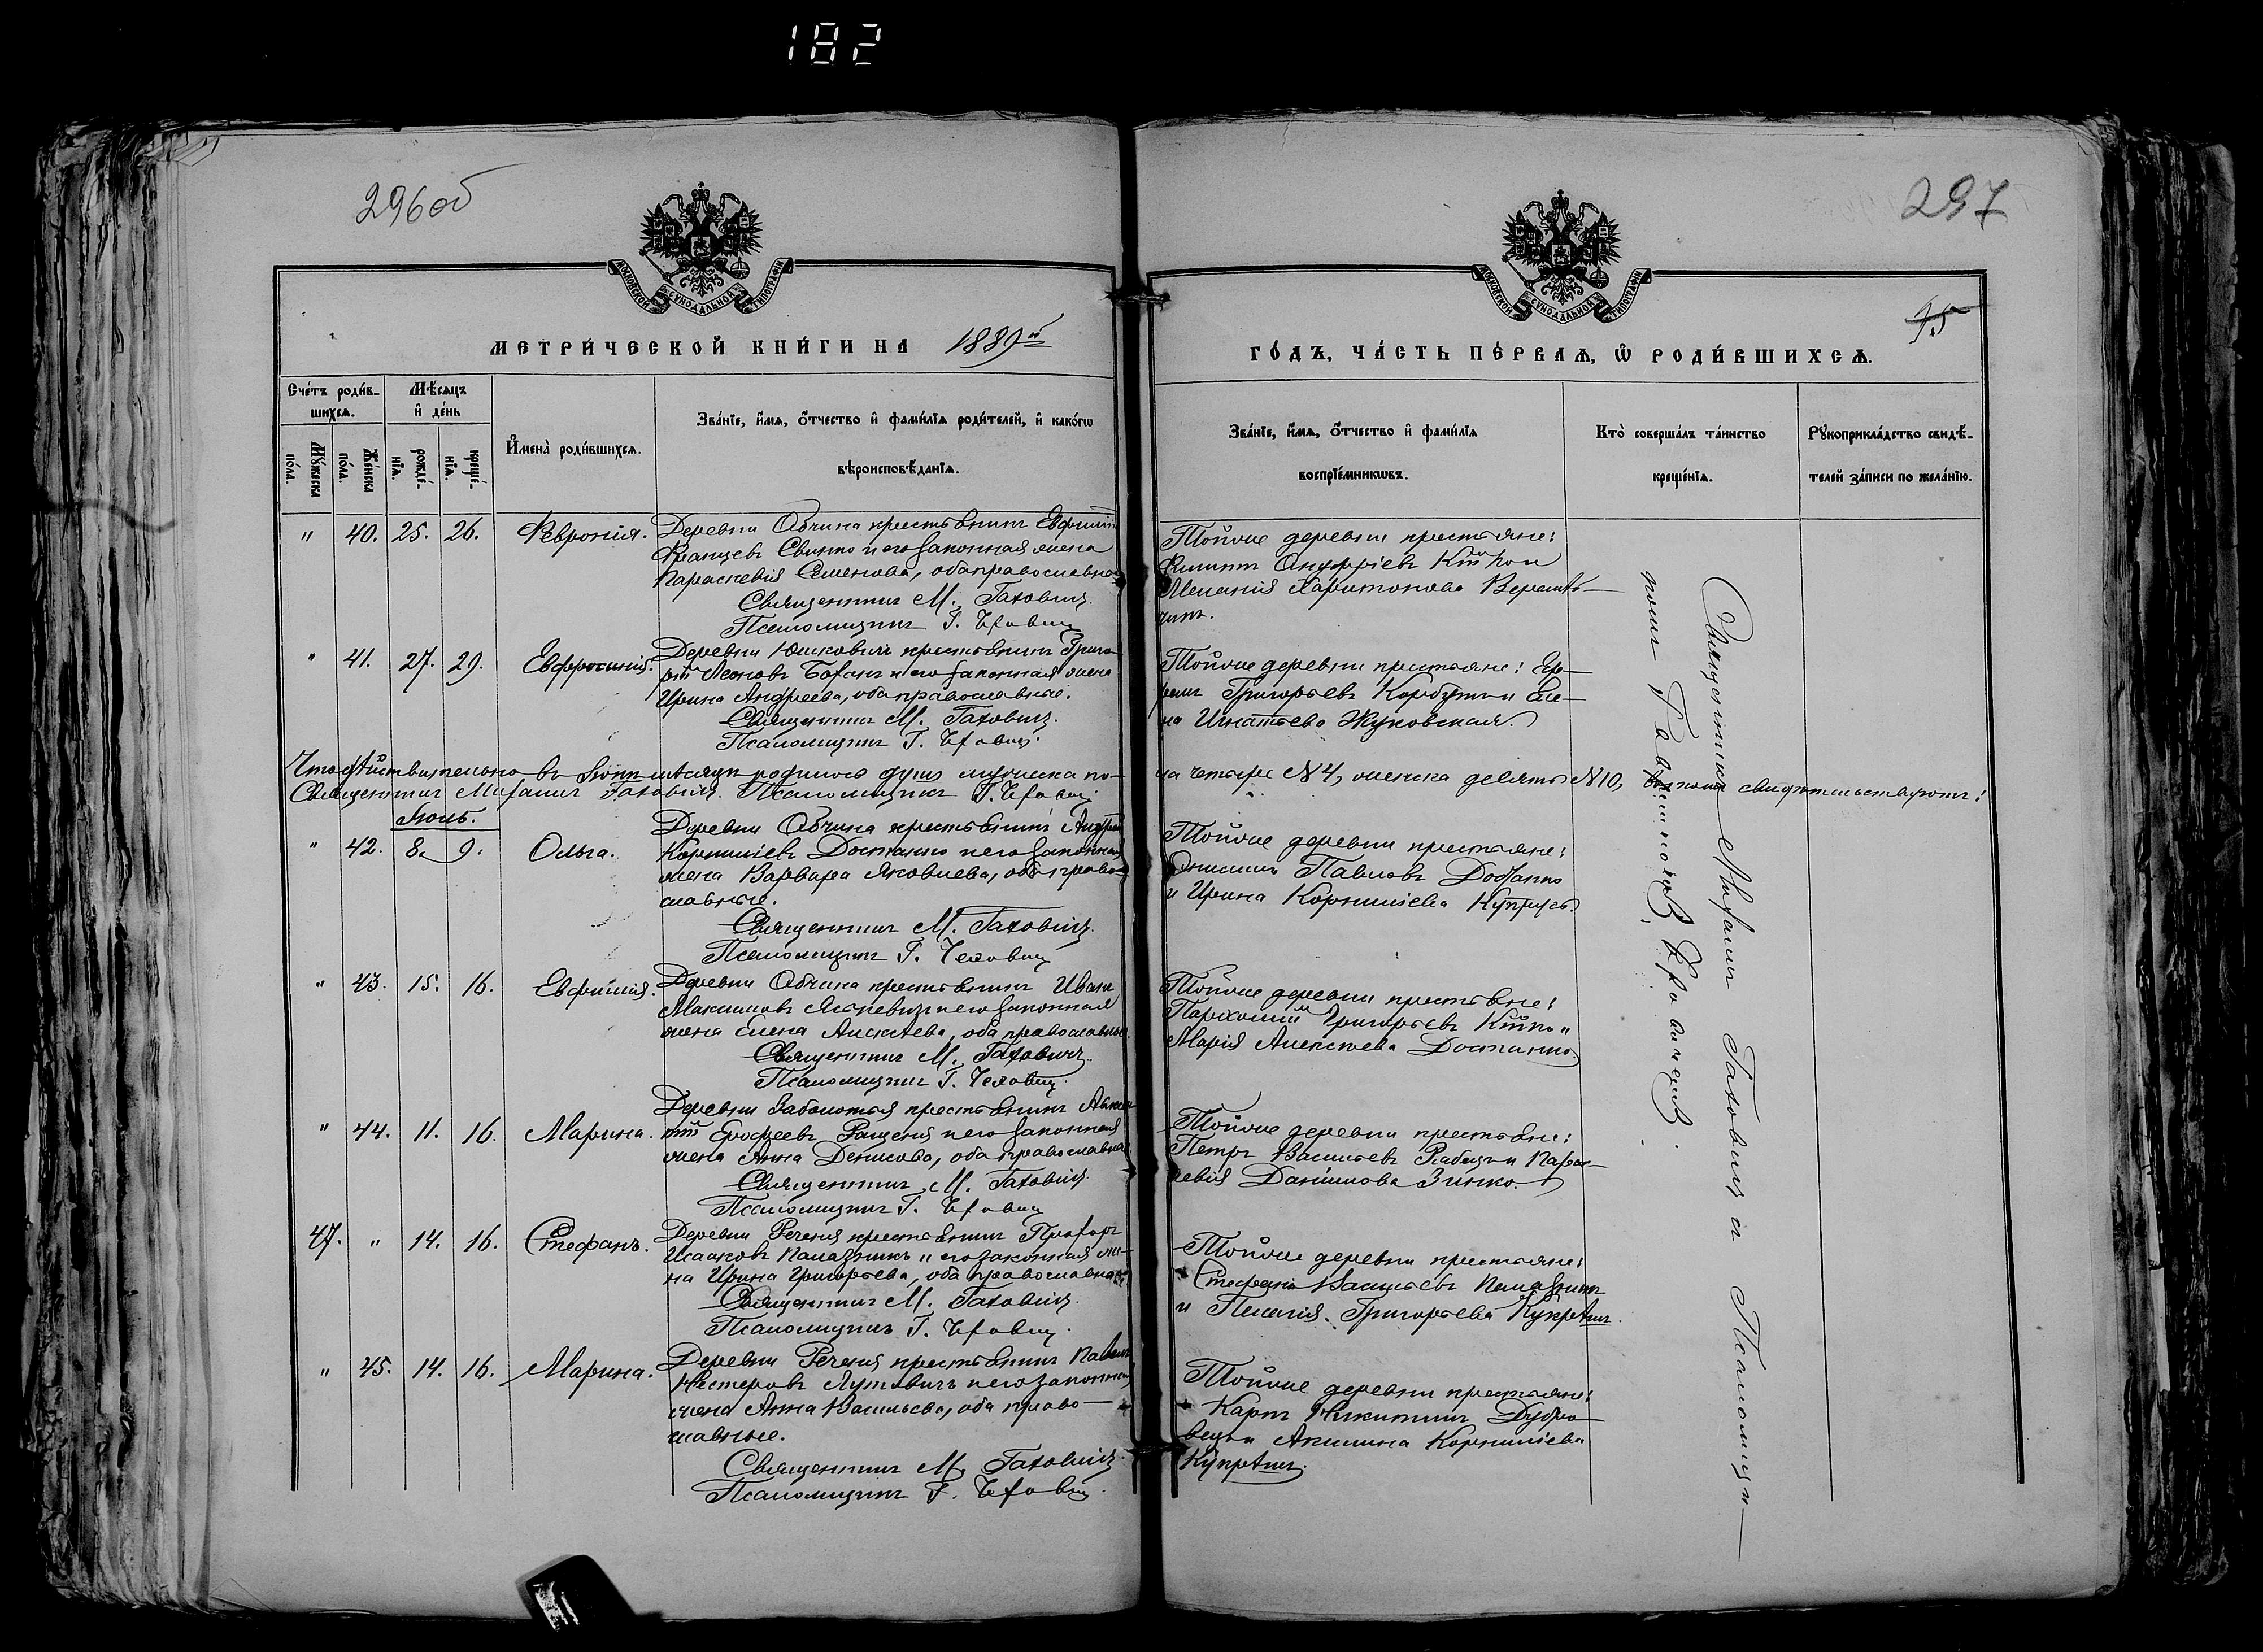 182
296об
297
МОСКОВСКОЙ СѴНОДАЛЬНОЙ ТИПОГРАФІИ
МОСКОВСКОЙ СѴНОДАЛЬНОЙ ТИПОГРАФІИ
45
МЕТРИ́ЧЕСКОЙ КНИ́ГИ НА 1889й
ГО́ДЪ, ЧА́СТЬ ПЕ́РВАѦ, Ѡ РОДИ́ВШИХСѦ.
Сче́тъ роди́в-
шихсѧ.
Мѣ́сѧцъ
и҆ де́нь
Мꙋ́жеска
по́ла.
Же́нска
по́ла.
рожде́-
нїѧ.
креще́-
нїѧ.
И҆мена̀ роди́вшихсѧ.
Зва́нїе, и҆́мѧ, ѻ҆́тчество и҆ фами́лїѧ роди́телей, и҆ како́гѡ
вѣроисповѣ́данїѧ.
Зва́нїе, и҆́мѧ, ѻ҆́тчество и҆ фами́лїѧ
воспрїе́мникѡвъ.
Кто̀ соверша́лъ та́инство
креще́нїѧ.
Рꙋкоприкла́дство свидѣ́-
телей за́писи по жела́нїю.
" 40. 25. 26. Феврония. Деревни Обчина крестьянинъ
Свирко и его законная жена
Параскевія Семенова, оба православные
Священникъ М. Гахович.
Псаломщикъ Г. Чехович
Тойже деревни крестьяне:
Филиппъ Онуфріевъ Кійко и
Меланія Харитонова
" 41. 27. 29. Евфросинія. Деревни Юшковичъ крестьянинъ Григо-
рій Леоновъ и его законная жена
Ирина Андреева, оба православные.
Священникъ М. Гахович.
Псаломщикъ Г. Чехович.
Тойже деревни крестьяне: Еф-
ремъ Григорьевъ Корбутъ и Еле-
на Игнатьева Жуковская.
Что дѣйствительно въ Іюнѣ мѣсяцѣ родилось душъ мужеска по-
ла четыре №4, женска десять №10, въ томъ свидѣтельствуютъ:
Священникъ Михаилъ Гаховичъ. Псаломщикъ Г. Чехович
Іюль.
" 42. 8. 9. Ольга. Деревни Обчина крестьянинъ Андрей
Корниліевъ Достанко и его законная
жена Варвара Яковлева, оба право-
славные.
Священникъ М. Гахович.
Псаломщикъ Г. Чехович
Тойже деревни крестьяне:
Онисимъ Павловъ
и Ирина Корниліева Купрусь.
" 43. 15. 16. Евфимія. Деревни Обчина крестьянинъ Иванъ
Максимовъ и его законная
жена Елена Алексѣева, оба православные.
Священникъ М. Гахович.
Псаломщикъ Г. Чехович.
Тойже деревни крестьяне:
Пархомій Григорьевъ Кійко и
Марія Алексѣева Достанко.
" 44. 11. 16. Марина. Деревни Заболотья крестьянинъ Авксен-
тій Ерофеевъ и его законная
жена Анна Денисова, оба православные.
Священникъ М. Гахович.
Псаломщикъ Г. Чехович
Тойже деревни крестьяне:
Петръ Васильевъ и Парас-
кевія Даніилова Зинко.
47. " 14. 16. Стефанъ. Деревни Реченя крестьянинъ Прохоръ
Исааковъ Палазникъ и его законная же-
на Ирина Григорьева, оба православные
Священникъ М. Гахович.
Псаломщикъ Г. Чехович.
Тойже деревни крестьяне:
Стефанъ Васильевъ Палазникъ
и Пелагія Григорьева
" 45. 14. 16. Марина. Деревни Реченя крестьянинъ Павелъ
Нестеровъ Лутовичъ и его законная
жена Анна Васильева, оба право-
славные.
Священникъ М. Гахович.
Псаломщикъ Г. Чехович.
Тойже деревни крестьяне:
Карпъ Никитинъ Дубро-
вецъ и Акилина Корниліева
Священникъ Михаилъ Гаховичъ и Псаломщ-